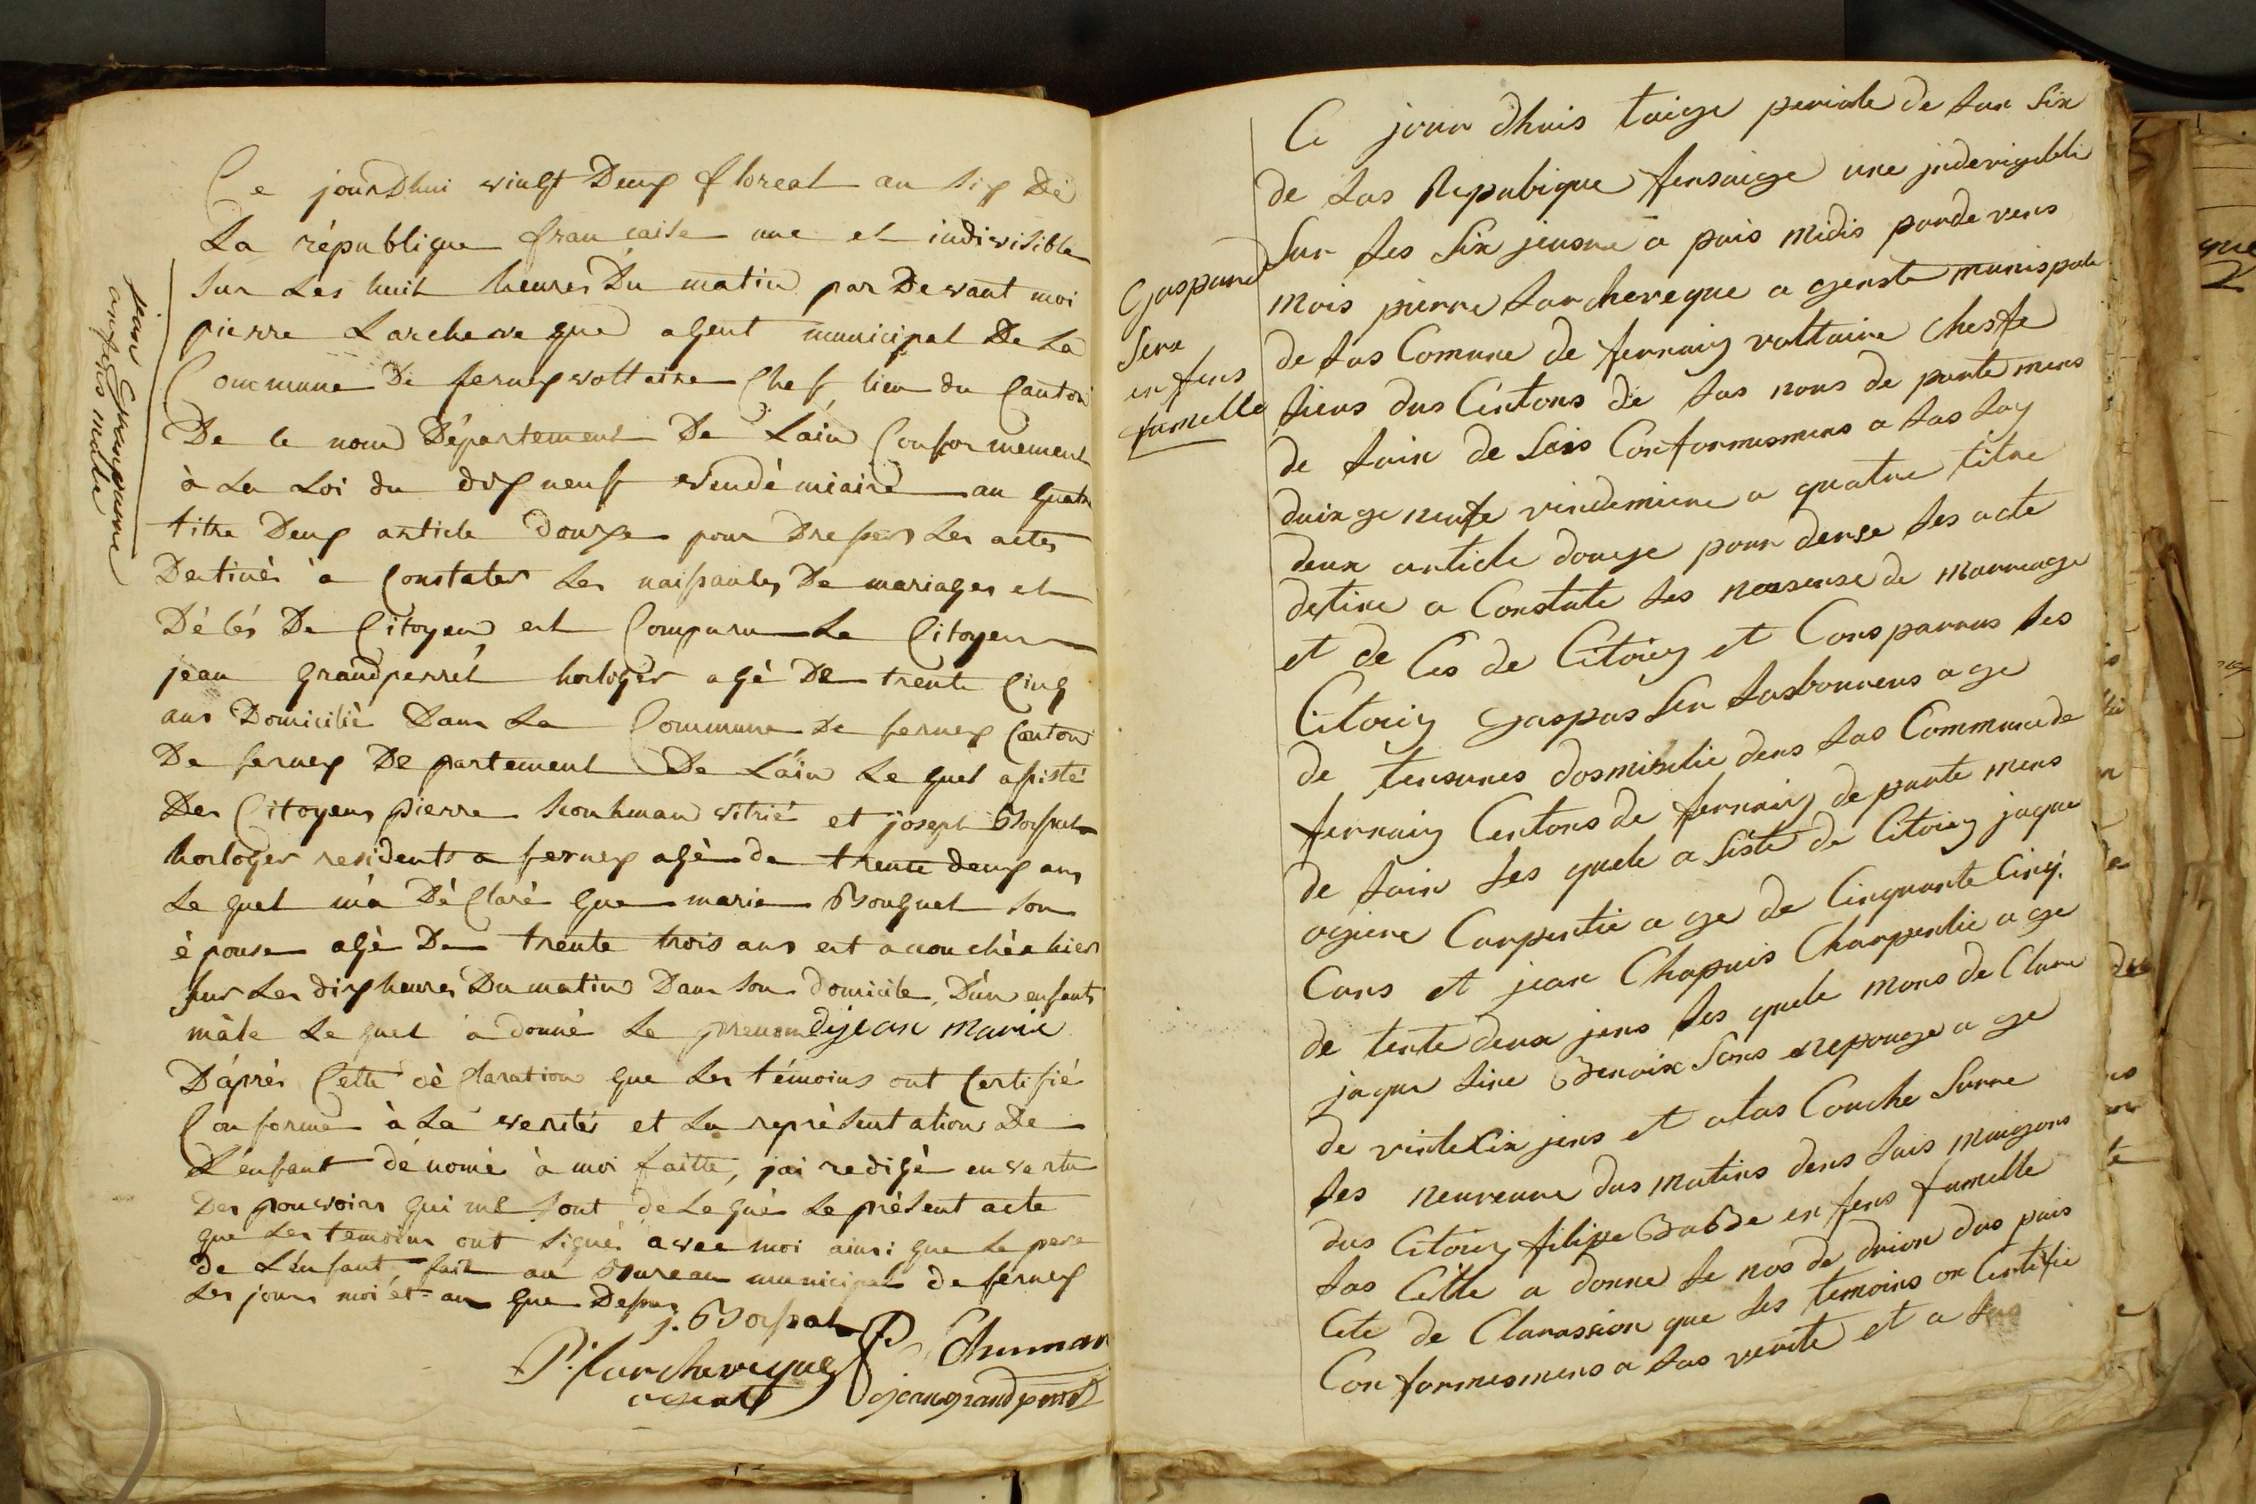 jean Grandperret
enfens malle
Ce jourDhui vingt Deux floreal an Six De
La république française une et indivisible
sur Les huit heures Du matin par Devant moi
pierre Larcheveque agent municipal De La
Commune De ferney voltaire Chef lieu du Canton
De ce nom Département De Lain Conformement
à La Loi du dix neuf Vendémiaire an quatre
titre Deux article douze pour Dresser Les actes
Destinés a Constater Les naissances De mariages et
Décés De Citoyen est Comparu Le Citoyen
jean grandperret horloger agé De trente Cinq
ans Domicilié Dans La Commune De ferney Canton
De ferney Departement De Lain Le quel assisté
Des Citoyens pierre vitrié et joseph Borssat
horloger residents a ferney agé de trente deux ans
Le quel m'a Déclaré que marie Bouquet son
épouse agé De trente trois ans est accouchée hier
sur Les dix heures Du matin Dans son domicile, D'un enfant
mâle Le quel a donné Le prenom dijean Marie
D'aprés Cette déclaration que Les témoins ont Certifié
Conforme à La verité et La représentation De
L'enfant dénomé à moi faitte, jai redigé en vertu
Des pouvoirs qui me sont delegué Le présent acte
que Les temoins ont signé avec moi ainsi que Le pere
de L'enfant, fait au Bureau municipal de ferney
Les jours moi et an que Dessus
j. Borssat
P. Larcheveque P. Chuman
agent jean grandperret
Gaspard
Sene
enfens
famelle
Ce jour dhuis taige periale de lan Six
de las Republique fensaige une jndevigibli
Sur les Six jeusre a puis midis pardevens
mois pierre Larcheveque a genste munispale
de las Comune de fernaiy voltaire Cheffe
liens dus Centons de las nons de partemens
de lain de Lais Conformesmens a las Loy
duix ge neufe vindemiere a quatre titre
deux article douge pour derse les acte
destine a Constate les nasense de marreage
et de Ces de Citoiy et Consparrus les
Citoiy gaspas Sen Lasbourens a ge
de tensunes dosmisilie dens las Commune de
fernaiy Centons de fernaiy de parte mens
de lain les quele a siste de Citoiy jaque
ogiere Carpentie a ge de Cinquante Cinq
Cans et jean Chapuis Charpentie a ge
de tente deux jens les quele mons de Clare
jaque line Benoix Sons nepouge a ge
de vinte Cix jens et atas Couche Surre
les neureure dus matins dens lais maigons
dus Citoiy filipe Babde enfens famelle
las Celle a donne le nos de drion dus puis
Cete de Clarassion que les temoins on Certifie
Conformesmens a las verite et a las